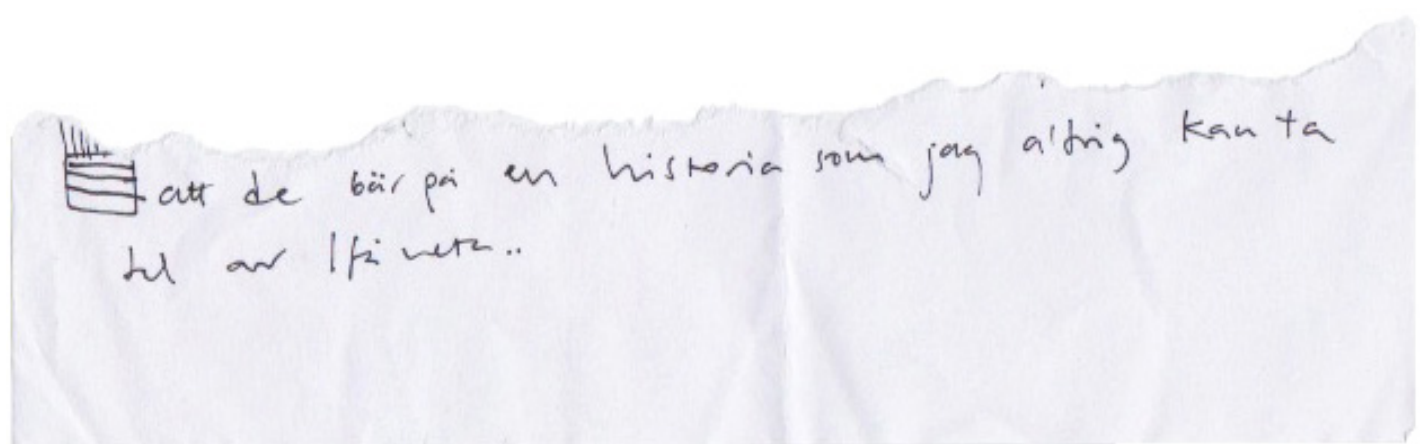 att de bär på en historia som jag aldrig kan ta
del av / få veta..